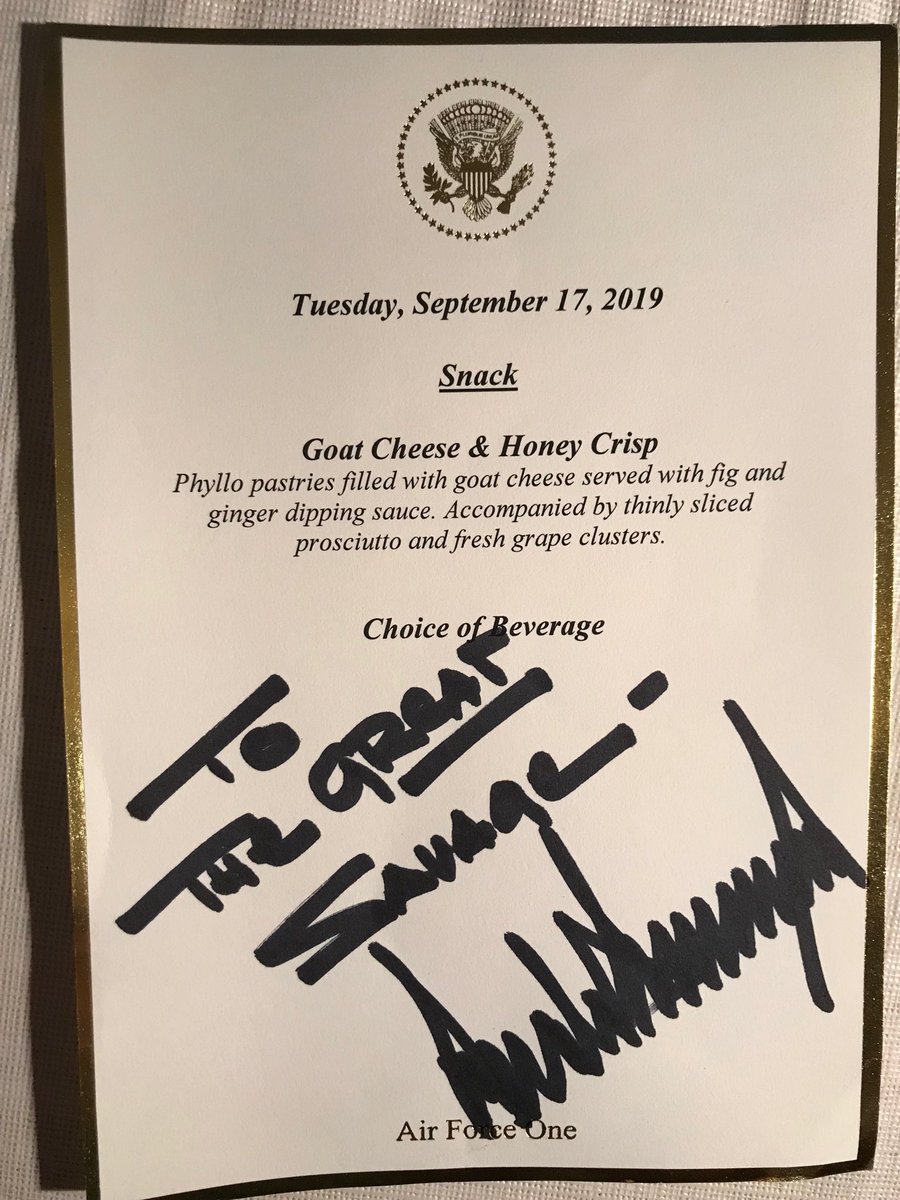 E PLURIBUS UNUM
Tuesday, September 17, 2019
Snack
Goat Cheese & Honey Crisp
Phyllo pastries filled with goat cheese served with fig and
ginger dipping sauce. Accompanied by thinly sliced
prosciutto and fresh grape clusters.
Choice of Beverage
TO
THE GREAT
SAVAGE!
Air Force One